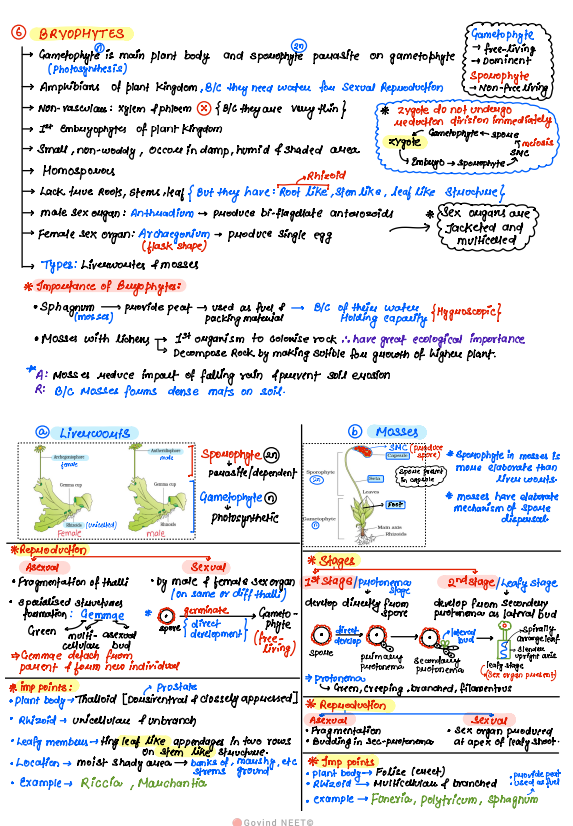 6 BRYOPHYTES
Gametophyte is main plant body and sporophyte parasite on gametophyte
n
2n
(Photosynthesis)
Amphibians of plant Kingdom, B/C they need water for Sexual Reproduction
Non-vascular: xylem & phloem ⓧ { B/C they are very thin }
1st Embryophytes of plant Kingdom
Small, non-woddy, occurs in damp, humid & shaded area
Homosporous
Rhizoid
Lack true Roots, stems, leaf { But they have: Root like, stem like, leaf like structure }
male sex organ: Antheridium → produce bi-flagellate antherozoids
Female sex organ: Archaegonium → produce single egg
(flask shape)
Types: Liverworts & mosses
Gametophyte
→ free-living
→ Dominent
Sporophyte
→ Non-free living
* zygote do not undergo
reduction division immediately
Gametophyte ← spore
zygote
meiosis
SMC
Embryo → sporophyte
* Sex organs are
Jacketed and
multicelled
* Importance of Bryophytes:
• Sphagnum → provide peat → used as fuel & → B/C of their water {Hygroscopic}
(mosses) packing material Holding capacity
• Mosses with lichens → 1st organism to colonise rock ∴ have great ecological importance
Decompose Rock by making soible for growth of higher plant.
* A: Mosses reduce impact of falling rain & prevent soil erosion
R: B/C mosses forms dense mats on soil.
a Liverworts
Archegoniophore
female
Antheridiophore
male
Gemma cup
Gemma cup
Rhizoids
(unicelled)
Rhizoids
Female
male
Sporophyte 2n
parasite/dependent
Gametophyte n
→ photosynthetic
* Reproduction
Asexual
Sexual
• Fragmentation of thalli
• specialised structures
formation: Gemmae
Green
multi-
cellular
asexual
bud
⇒ Gemmae detach from
parent & form new individual
• by male & female sex organ
(on same or diff thalli)
* spore germinate Gameto-
phyte
{direct
development}
(free-
living)
* imp points:
Prostate
• plant body → Thalloid [Dorsiventral & closely appressed]
• Rhizoid → unicellular & unbranch
• Leafy members → tiny leaf like appendages in two rows
on stem like structure.
• Location → moist shady area → banks of, marshy, etc
strems ground
• Example → Riccia, Marchantia
b Mosses
SMC (produce
spore)
Capsule
Seta
Spore present
in capsule
Sporophyte
2n
Leaves
Foot
Gametophyte
n
Main axis
Rhizoids
* Sporophyte in mosses is
more elaborate than
liver worts.
* mosses have elaborate
mechanism of spore
dispersal
* Stages
1st stage/protonema
stage
2nd stage/Leafy stage
develop directly from
spore
develop from secondary
protonema as lateral bud
spore
direct
develop
primary
protonema
Secondary
protonema
lateral bud
Spirally
arrange leaf
Slender
upright axis
leafy stage
(Sex organ present)
⇒ Protonema
→ Green, creeping, branched, filamentous
* Reproduction
Asexual
Sexual
• Fragmentation
• Budding in sec-protonema
• Sex organ produced
at apex of leafy shoot.
* Imp points
• plant body → Foliose (erect)
• Rhizoid → Multicellular & branched
• provide peat
used as fuel
• example → Funeria, polytricum, sphagnum
Govind NEET©